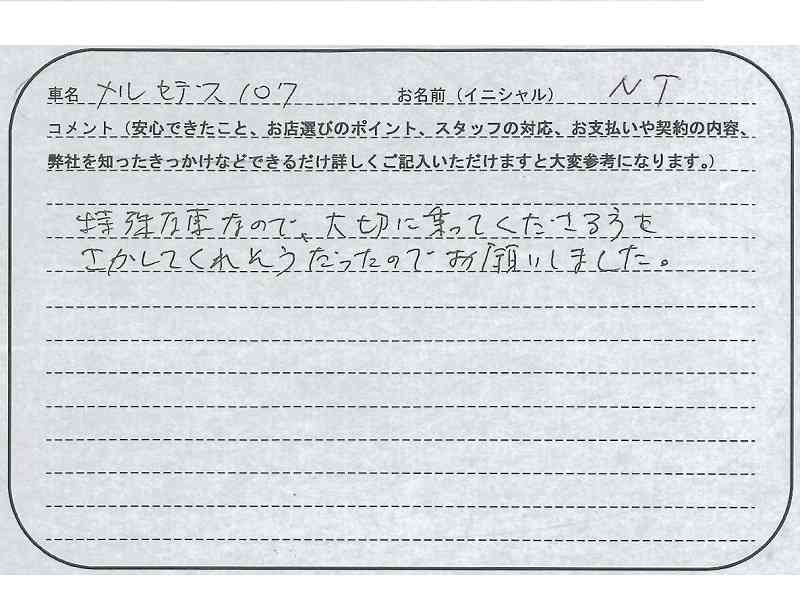 車名 メルセデス 107 お名前（イニシャル） NT
コメント（安心できたこと、お店選びのポイント、スタッフの対応、お支払いや契約の内容、
弊社を知ったきっかけなどできるだけ詳しくご記入いただけますと大変参考になります。）
特殊な車なので、大切に乗ってくださる方を
さがしてくれそうだったのでお願いしました。